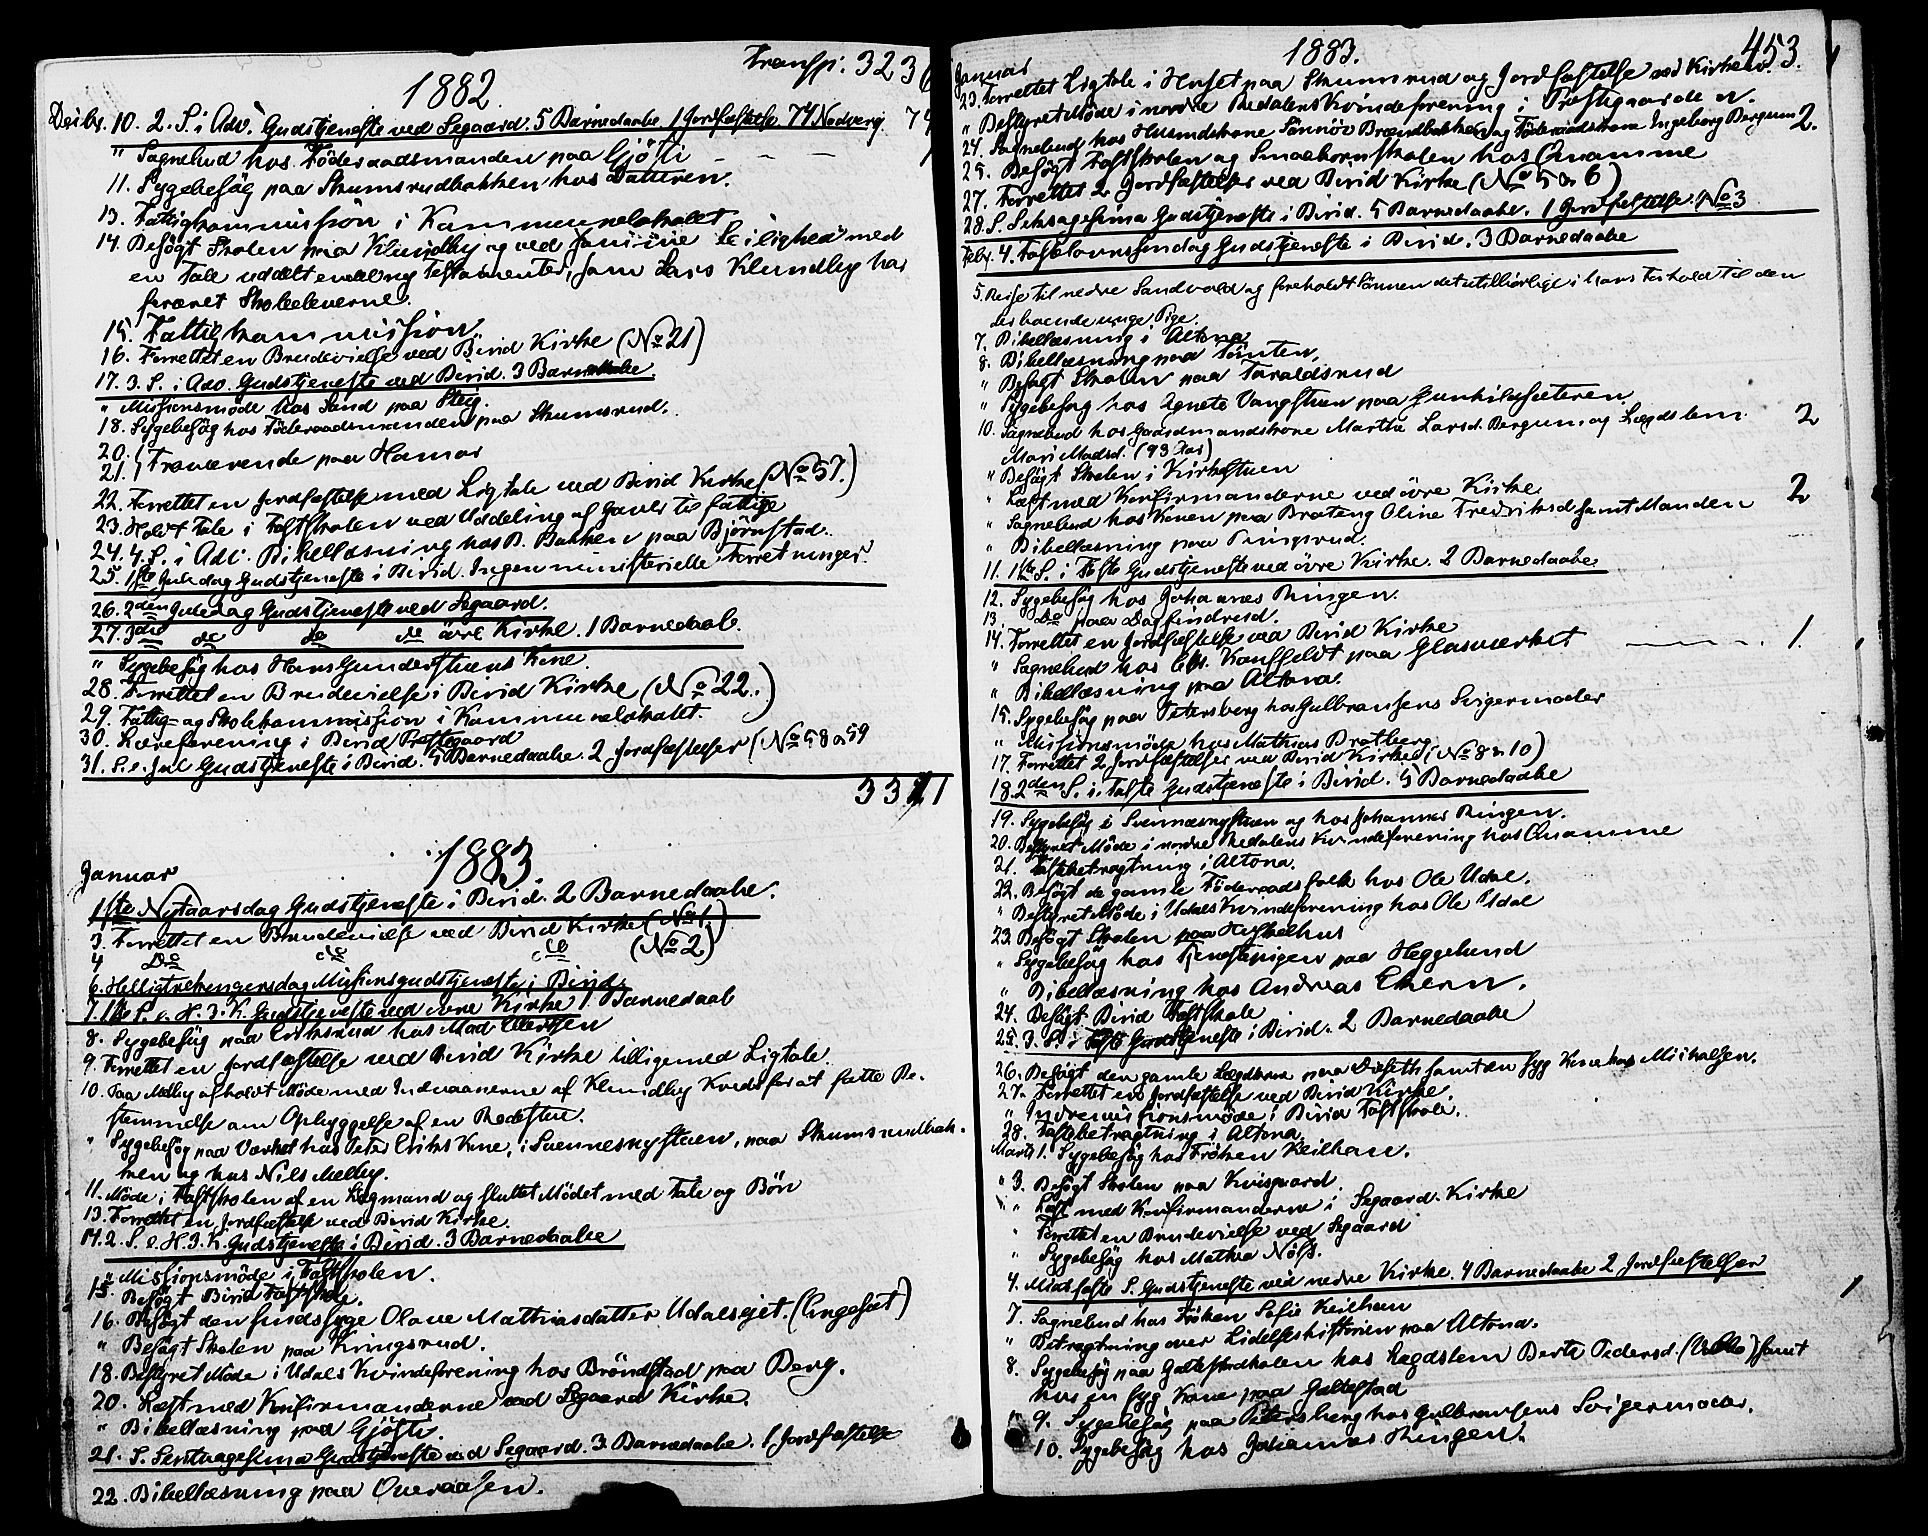 1882
Transp. 323
Decbr. 10. 2. S. i Adv. Gudstjeneste ved Segaard. 5 Barnedaabe 1 Jordfæstelse 74 Nadverg. 74
" Sognebud hos Föderaadsmanden paa Gjösti
11. Sygebesög paa Skumsrudbakken hos
13. Fattigkommission i Kommunelokalet
14. Besögt Skolen paa Klundby og ved samme Leilighed med
en Tale uddelt Testamenter, som Lars Klundby har
foræret Skoleeleverne.
15. Fattigkommission.
16. Forrettet en Brudevielse ved Birid Kirke (No 21)
17. 3. S. i Adv. Gudstjeneste ved Birid. 3 Barnedaabe.
" Missionsmöde hos Sand paa Steig.
18. Sygebesög hos Föderaadsmanden paa Skumsrud.
20.
21. Fraværende paa Hamar
22. Forrettet en Jordfæstelse med Ligtale ved Birid Kirke (No 57.)
23. Holdt Tale i Fastskolen ved Uddeling af Gaver til fattige
24. 4. S. i Adv. Bibellæsning hos B. Bakken paa Björnstad.
25. 1ste Juledag Gudstjeneste i Birid. Ingen ministerielle Forretninger.
26. 2den Juledag Gudstjeneste ved Segaard.
27. 3die do do do övre Kirke. 1 Barnedaab.
" Sygebesög hos Hans Gunderstuens Kone.
28. Forrettet en Brudevielse i Birid Kirke (No 22.)
29. Fattig- og Skolekommission i Kommunelokalet.
30. Læreforening i Birid Prestegaard
31. S. e. Jul Gudstjeneste i Birid. 5 Barnedaabe. 2 Jordfæstelser (No 58 o 59
33
1883.
Januar
1ste Nytaarsdag Gudstjeneste i Birid. 2 Barnedaabe.
3. Forrettet en Brudevielse ved Birid Kirke (No 1.)
4 Do do do (No 2)
6. Helligtrekongersdag Missionsgudstjeneste i Birid.
7. 1ste S. e. H. 3. K. Gudstjeneste ved övre Kirke 1 Barnedaab
8. Sygebesög paa Eriksrud hos Mad.
9. Forrettet en Jordfæstelse ved Birid Kirke tilligemed Ligtale.
10. Paa Melby afholdt Möde med Indvaanerne af Klundby Kreds for at fatte Be-
stemmelse om Opbyggelse af en
" Sygebesög paa Værket hos Peter Eriks Kone, i Svennesnystuen, paa Skumsrudbak-
ken og hos Nils Melby.
11. Möde i Fastskolen af en Lægmand og sluttet Mödet med Tale og Bön
13. Forrettet en Jordfæstelse ved Birid Kirke.
14. 2. S. e. H. 3. K. Gudstjeneste i Birid. 3 Barnedaabe
" Missionsmöde i Fastskolen.
15. Besögt Birid Fastskole.
16. Besögt den sindssyge Olave Mathiasdatter Udalsejet.
" Besögt Skolen paa Kingsrud.
18. Bestyret Möde i Udals Kvindeforening hos Bröndstad paa Berg.
20. Læst med Konfirmanderne ved Segaard Kirke.
" Bibellæsning paa Gjösti.
21. S. Septuagesima Gudstjeneste ved Segaard. 3 Barnedaabe. 1 Jordfæstelse
22. Bibellæsning paa Overaasen.
1883.
453.
Januar
23. Forrettet Ligtale i Huset paa Skumsrud og Jordfæstelse ved Kirken.
" Bestyret Möde i nordre Redalens Kvindeforening i Prestegaarden.
24. Sognebud hos Husmdskone Sönnöv Brændbakken og Föderaadskone Ingeborg Bergum 2.
25. Besögt Fastskolen og Smaabörnskolen hos Qvamme
27. Forrettet 2 Jordfæstelser ved Birid Kirke (No 5 & 6)
28. S. Seksagesima Gudstjeneste i Birid. 5 Barnedaabe. 1 Jordfæstelse. No 3
Febr. 4. Fastelavnssöndag Gudstjeneste i Birid. 3 Barnedaabe
5. Reise til nedre Sandvold og foreholdt Sönnen det utilbörlige i hans Forhold til den
der boende unge Pige.
7. Bibellæsning i Altona
8. Bibellæsning paa Tömten.
" Besögt Skolen paa Taraldsrud
" Sygebesög hos Agnete Vangstuen paa Gunhildsæteren
10. Sognebud hos Gaardmandskone Marthe Larsd. Bergum og Lægdslem 2
Mari Madsd. (93 Aar)
" Besögt Skolen i Kirkestuen
" Læst med Konfirmanderne ved övre Kirke
" Sognebud hos Konen paa Braateng Oline Fredriksd samt Manden 2
" Bibellæsning paa
11. 1ste S. i Faste Gudstjeneste ved övre Kirke. 2 Barnedaabe
12. Sygebesög hos Johannes Ringen.
13. Do paa Dagfindrud.
14. Forrettet en Jordfæstelse ved Birid Kirke
" Sognebud hos Chr. Kauffeldt paa Glasværket 1.
" Bibellæsning paa Altona.
15. Sygebesög paa Petersberg hos Gulbransens Svigermoder
" Missionsmöde hos Mathias Bratberg
17. Forrettet 2 Jordfæstelser ved Birid Kirke (No 8 & 10)
18. 2den S. i Faste Gudstjeneste i Birid. 5 Barnedaabe
19. Sygebesög i Svennesnystuen og hos Johannes Ringen.
20. Bestyret Möde i nordre Redalens Kvindeforening hos Qvamme
21. Fastebetragtning i Altona.
22. Besögt de gamle Föderaadsfolk hos Ole Udal.
" Bestyret Möde i Udals Kvindeforening hos Ole Udal
23. Besögt Skolen paa
" Sygebesög hos Tjenestepigen paa Heggelund
" Bibellæsning hos Andreas Ekern.
24. Besögt Birid Fastskole
25. 3. S. i Faste Gudstjeneste i Birid. 2 Barnedaabe
26. Besögt den gamle paa samt en syg Kone hos Mikalsen.
27. Forrettet en Jordfæstelse ved Birid Kirke.
" Indremissionsmöde i Birid Fastskole.
28. Fastebetragtning i Altona.
Marts 1. Sygebesög hos Fröken Keilhau.
" 3. Besögt Skolen paa Kvisgaard.
" " Læst med Konfirmanderne i Segaard Kirke
" Forrettet en Brudevielse ved Segaard
" Sygebesög hos Mathea Nöss.
4. Midfaste S. Gudstjeneste ved nedre Kirke. 4 Barnedaabe 2 Jordfæstelser
7. Sognebud hos Fröken Sofie Keilhau 1
" Betragtning over Lidelseshistorien paa Altona.
8. Sygebesög paa Galtestadskolen hos Lægdslem Berte Pedersd. samt
hos en syg Kone paa Galtestad
9. Sygebesög paa Petersberg hos Gulbransens Svigermoder.
10. Sygebesög hos Johannes Ringen.